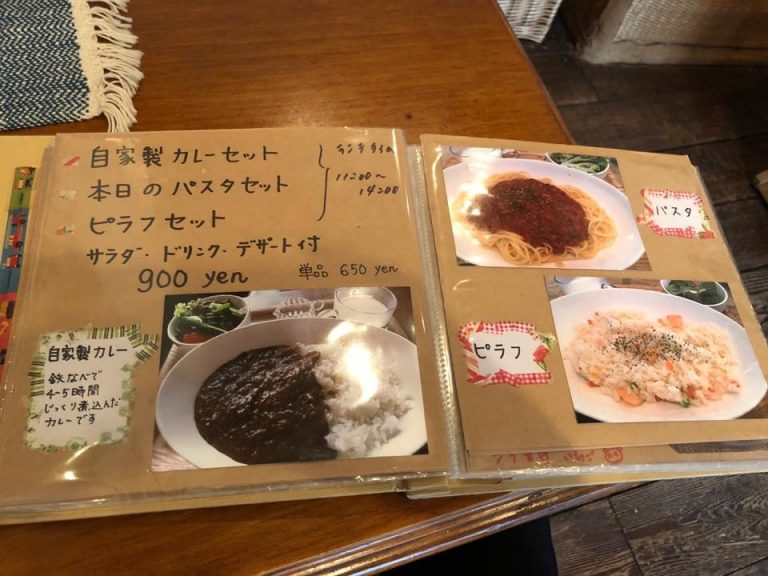 自家製カレーセット
本日のパスタセット
ピラフセット
ランチタイム
11:00〜
14:00
サラダ・ドリンク・デザート付
900 yen
単品 650 yen
自家製カレー
鉄なべで
4-5時間
じっくり煮込んだ
カレーです
パスタ
ピラフ